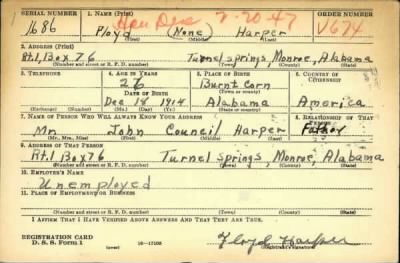 SERIAL NUMBER 1. NAME (Print) ORDER NUMBER
Hon Dis 7-20-47
1686 Floyd (None) Harper V674
(First) (Middle) (Last)
2. ADDRESS (Print)
Rt.1, Box 76 Tunnel springs, Monroe, Alabama
(Number and street or R. F. D. number) (Town) (County) (State)
3. TELEPHONE 4. AGE IN YEARS 5. PLACE OF BIRTH 6. COUNTRY OF CITIZENSHIP
26 Burnt Corn
DATE OF BIRTH (Town or county)
Dec 18 1914 Alabama America
(Exchange) (Number) (Mo.) (Day) (Yr.) (State or country)
7. NAME OF PERSON WHO WILL ALWAYS KNOW YOUR ADDRESS 8. RELATIONSHIP OF THAT PERSON
Mr. John Council Harper Father
(Mr., Mrs., Miss) (First) (Middle) (Last)
9. ADDRESS OF THAT PERSON
Rt.1 Box 76 Tunnel springs, Monroe, Alabama
(Number and street or R. F. D. number) (Town) (County) (State)
10. EMPLOYER'S NAME
Unemployed
11. PLACE OF EMPLOYMENT OR BUSINESS
(Number and street or R. F. D. number) (Town) (County) (State)
I AFFIRM THAT I HAVE VERIFIED ABOVE ANSWERS AND THAT THEY ARE TRUE.
REGISTRATION CARD
D. S. S. Form 1 16—17105 Floyd Harper
(Registrant's signature)